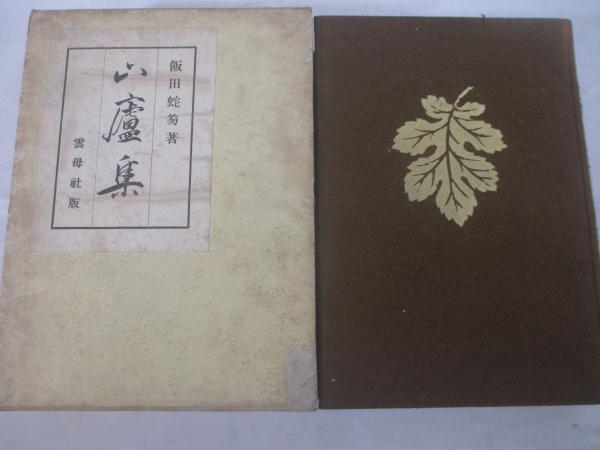 飯田蛇笏著
山廬集
雲母社版